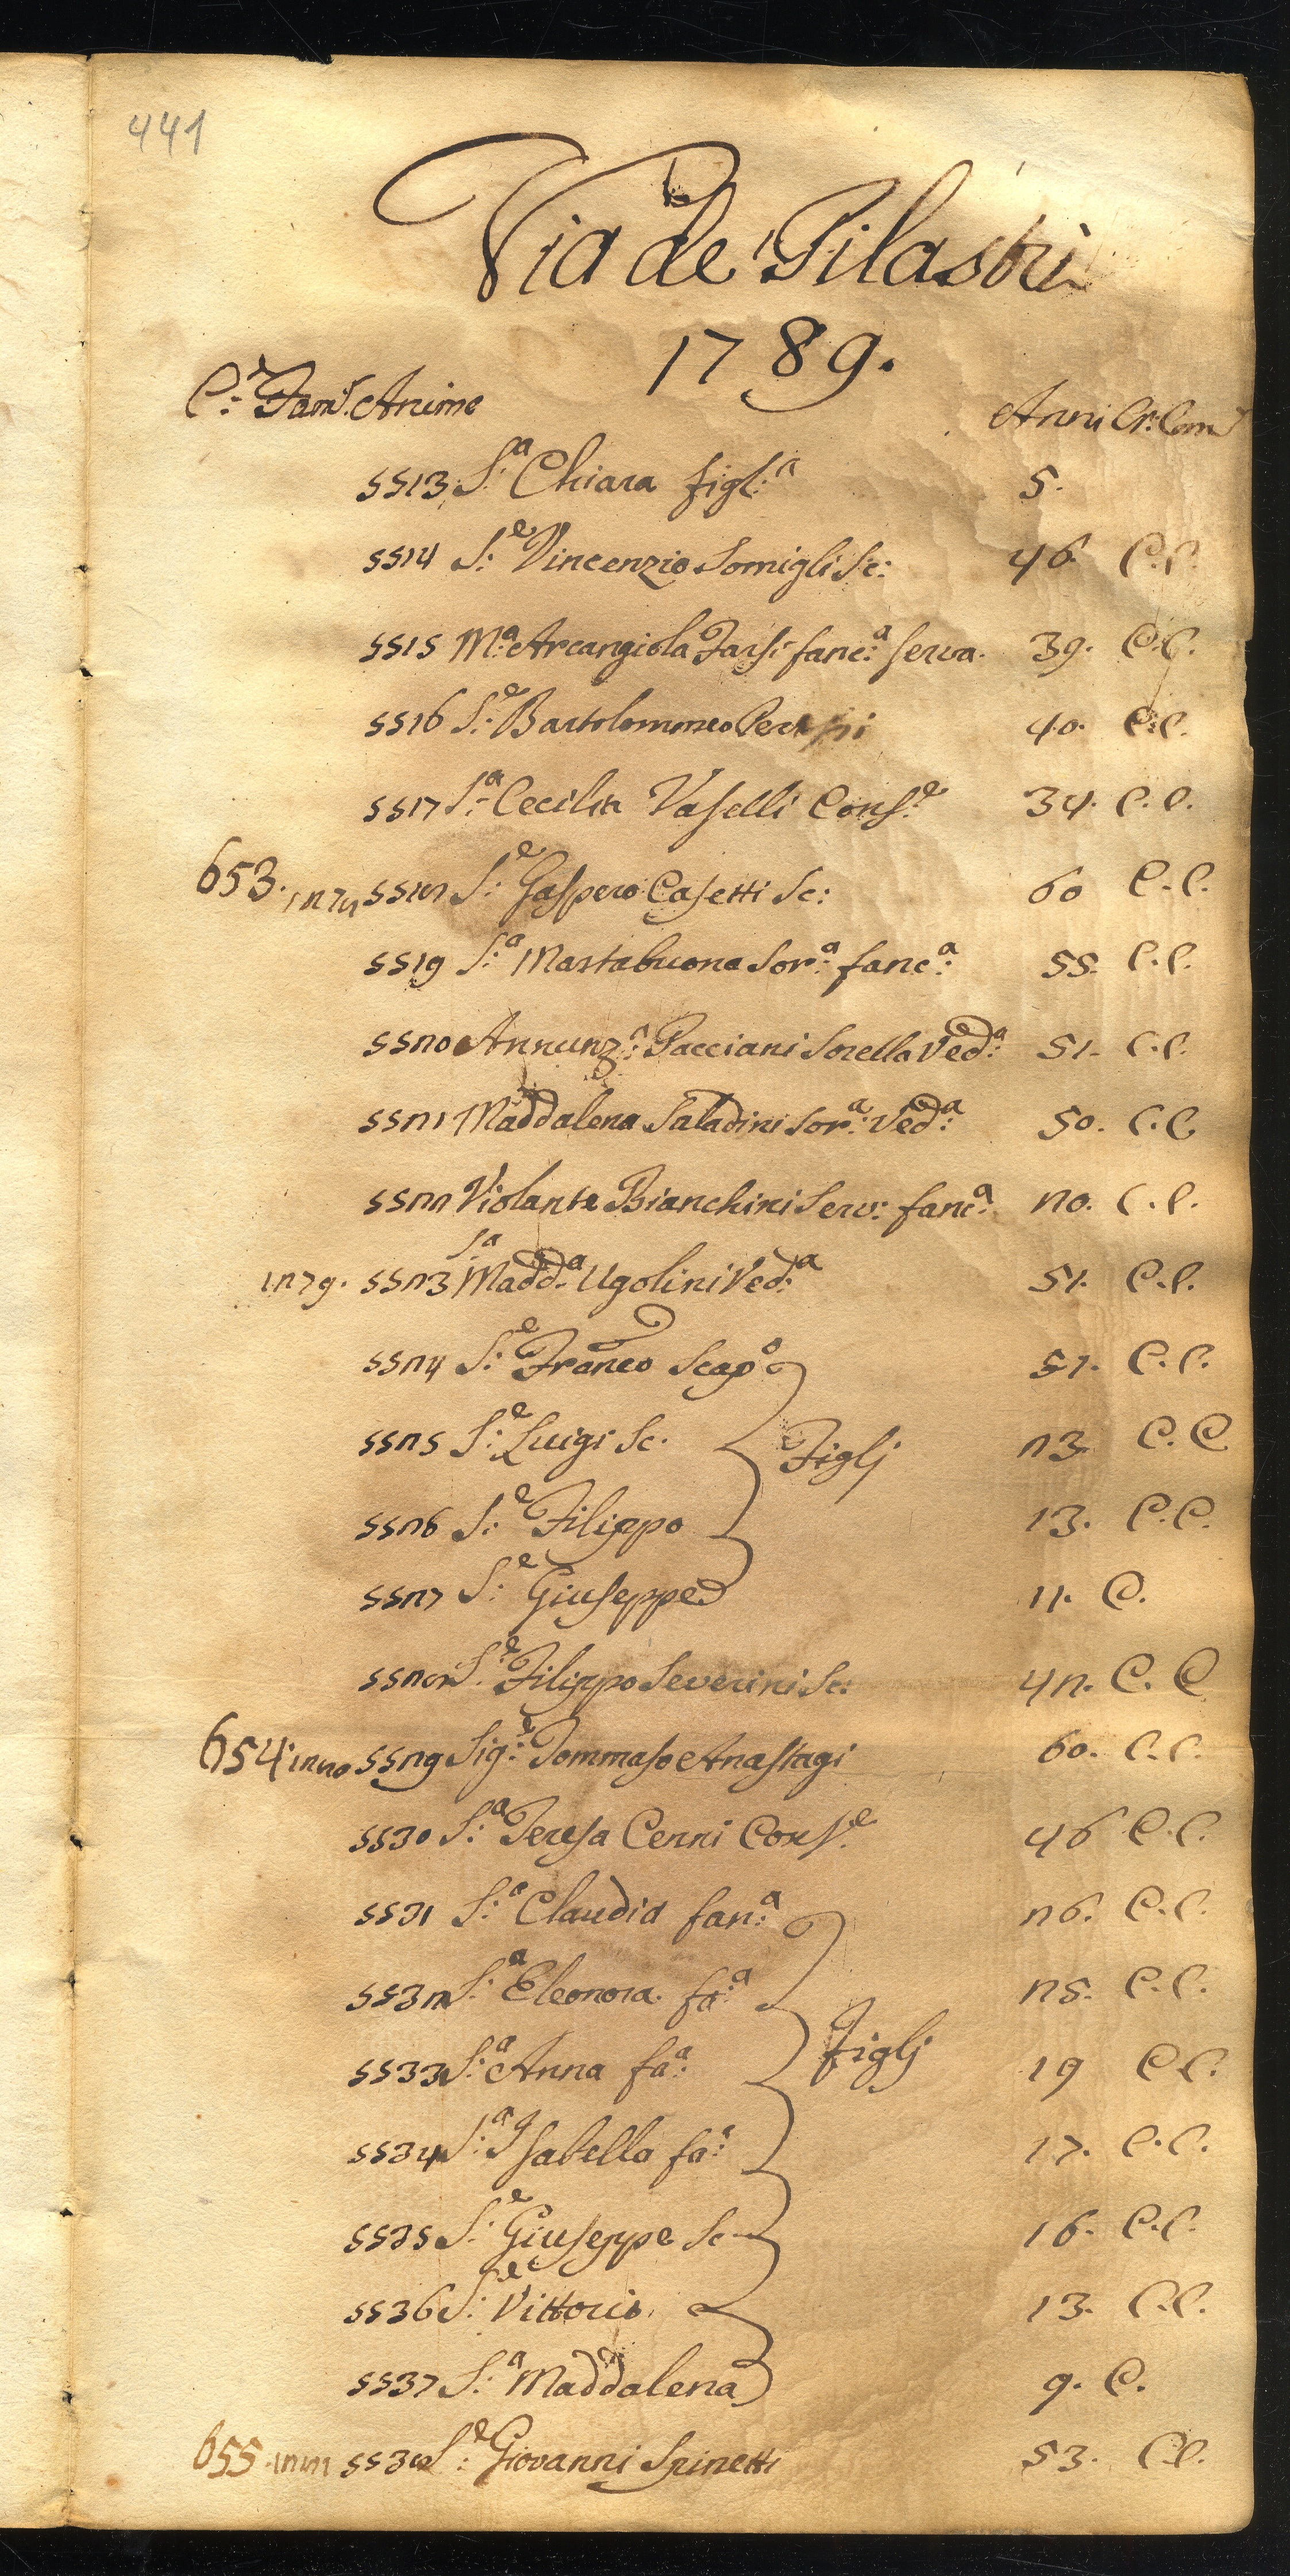 441
Via de' Pilastri
1789.
C.e Fam.e Anime Anni Cr: Com.
5513 S.a Chiara figl:a 5.
5514 S:e Vincenzio Somigli Sc: 46 C.C.
5515 M:a Arcangiola Farsi fanc:a serva. 39. C.C.
5516 S:e Bartolommeo 40. C.C.
5517 S:a Cecilia Vaselli Cons:e 34. C.C.
653. 1278 5518 S:e Gaspero Casetti Sc: 60 C.C.
5519 S:a Martabuona Sor:a fanc:a 55. C.C.
5520 Annunz:a Pacciani Sorella Ved:a 51. C.C.
5521 Maddalena Saladini Sor:a Ved:a 50. C.C.
5522 Violante Bianchini Serv: fanc:a 20. C.C.
1279. 5523 S.a Madd.a Ugolini Ved:a 51. C.C.
5524 S:e Franco Scapo 51. C.C.
5525 S:e Luigi Sc. Figlj 23. C.C.
5526 S:e Filippo 13. C.C.
5527 S:e Giuseppe 11. C.
5528 S:e Filippo Severini Sc: 42. C.C.
654. 1280 5529 Sig:e Tommaso Anastagi 60. C.C.
5530 S:a Teresa Cenni Cons:e 46 C.C.
5531 S:a Claudia fan:a 26. C.C.
5532 S:a Eleonora fa:a 25. C.C.
5533 S:a Anna fa:a Figlj 19 C.C.
5534 S:a Isabella fa:a 17. C.C.
5535 S:e Giuseppe Sc 16. C.C.
5536 S:e Vittorio 13. C.C.
5537 S:a Maddalena 9. C.
655. 1281 5538 S:e Giovanni Spinetti 53. C.C.